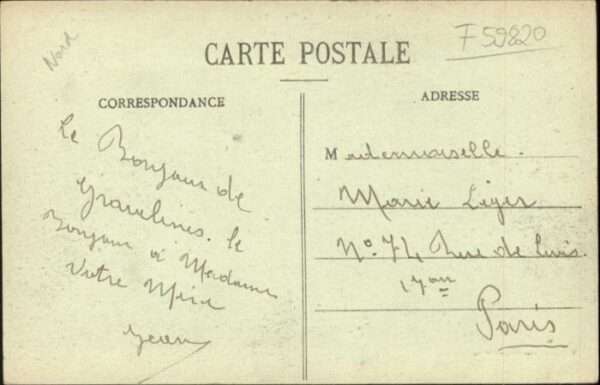 Nord
F 59820
CARTE POSTALE
CORRESPONDANCE
Le Bonjour de
Gravelines. le
Bonjour à Madame
Votre Mère
Jean
ADRESSE
Mademoiselle.
Marie Léger
No. 74 Rue de
Paris